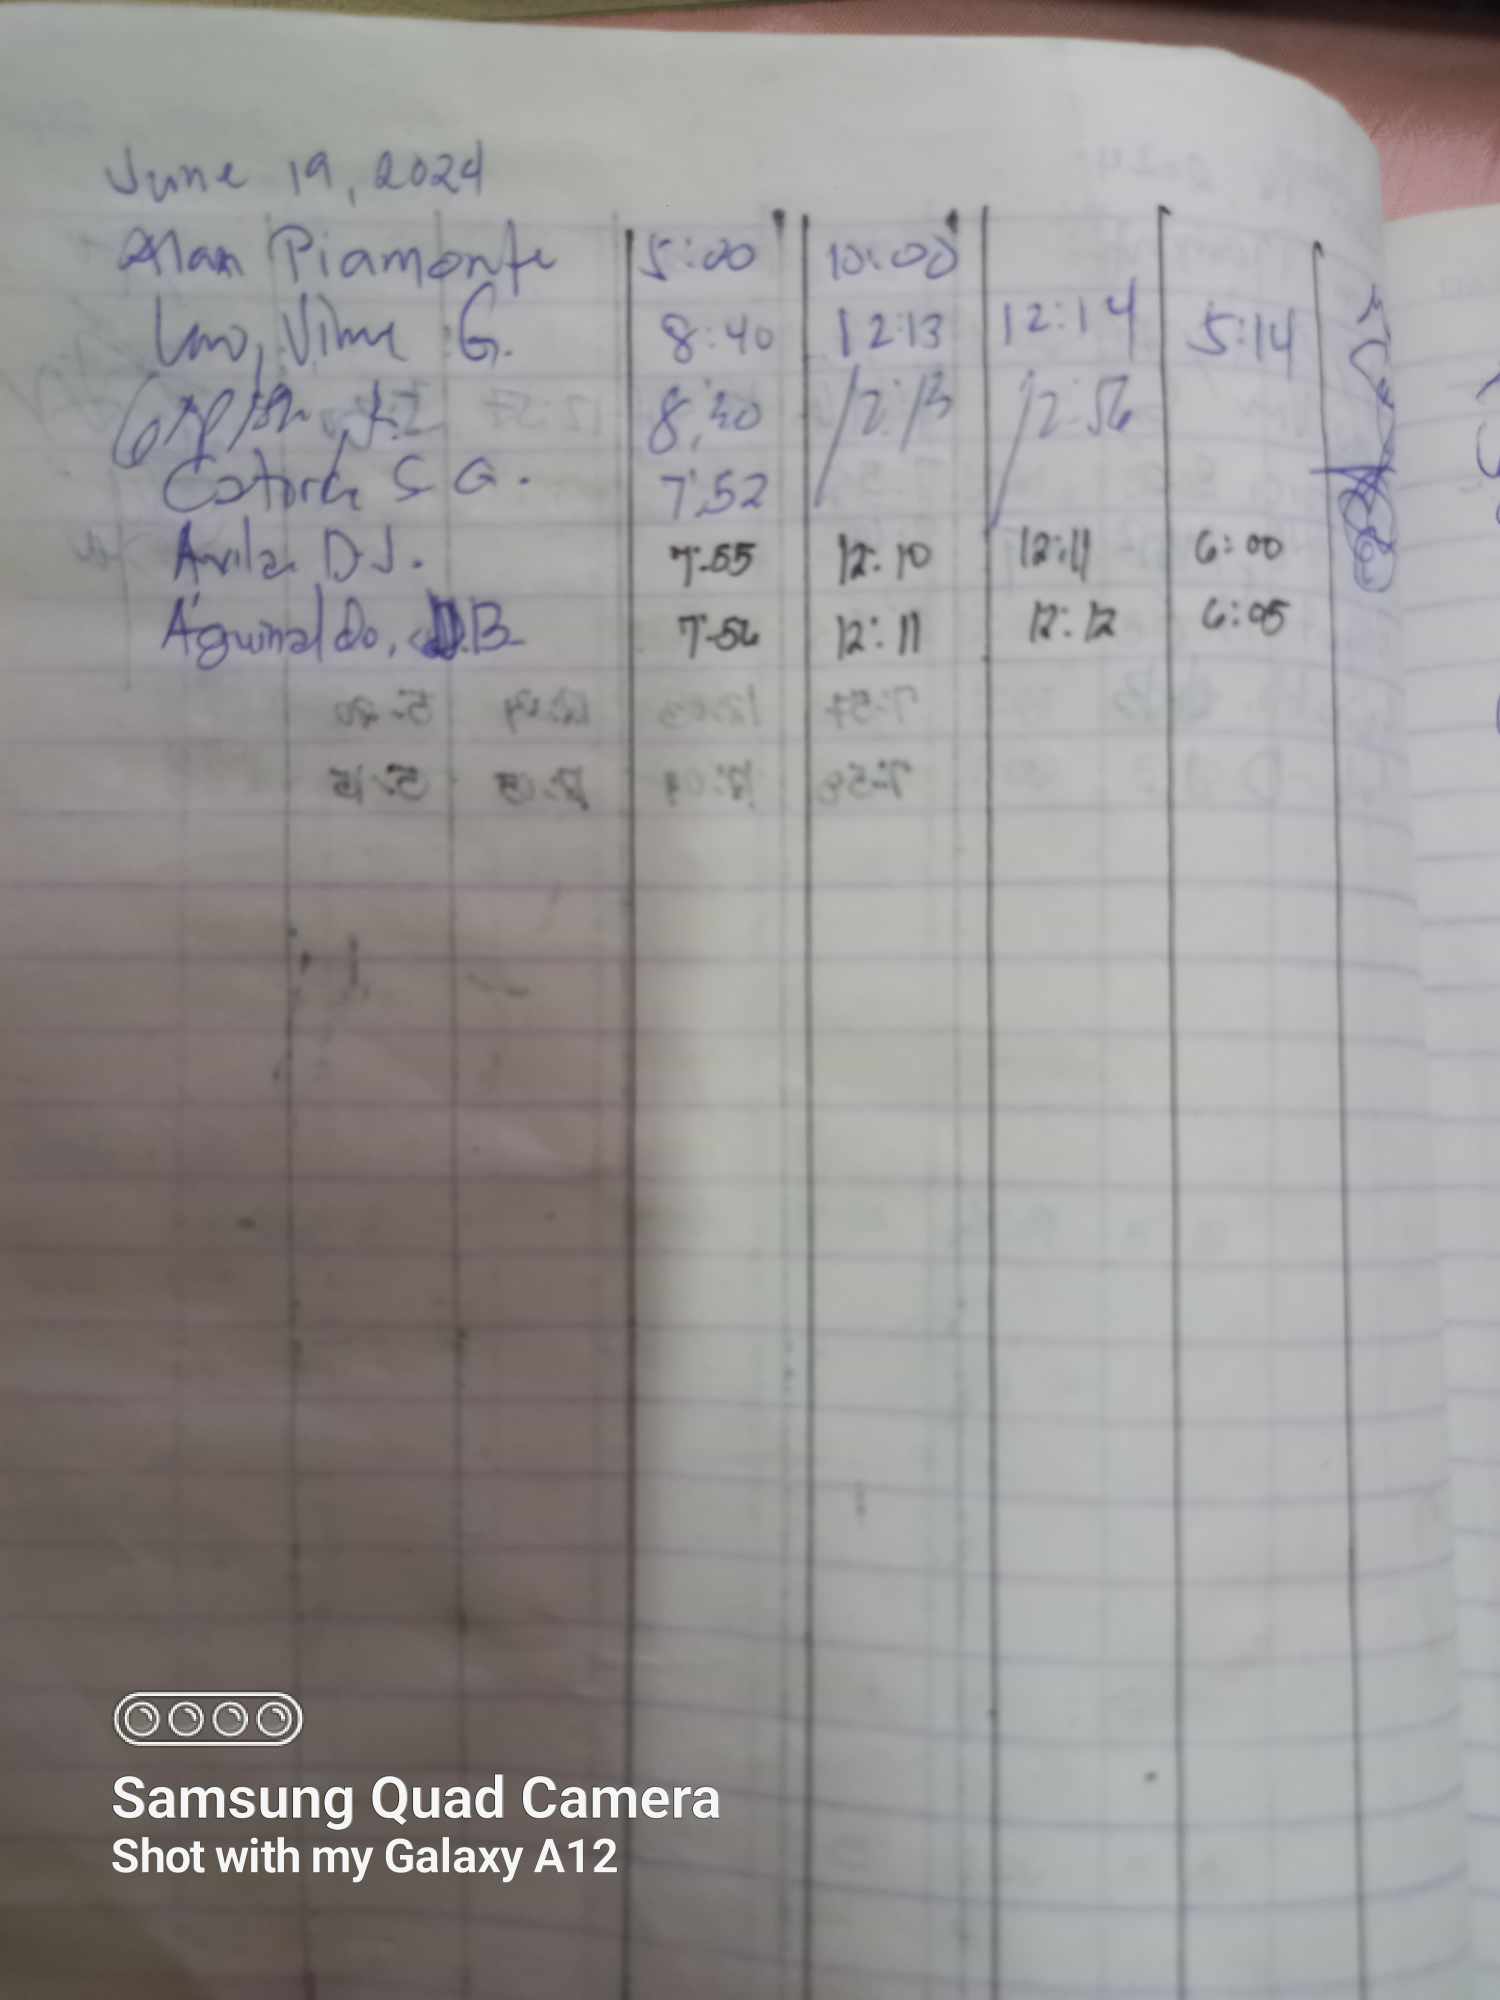 June 19, 2024
Alan Piamonte 5:00 10:00
Vilma G. 8:40 12:13 12:14 5:14
8:40 12:13 12:56
S G. 7:52
Avila D J. 7:55 12:10 12:11 6:00
Aguinaldo, B 7:56 12:11 12:12 6:05
Samsung Quad Camera
Shot with my Galaxy A12